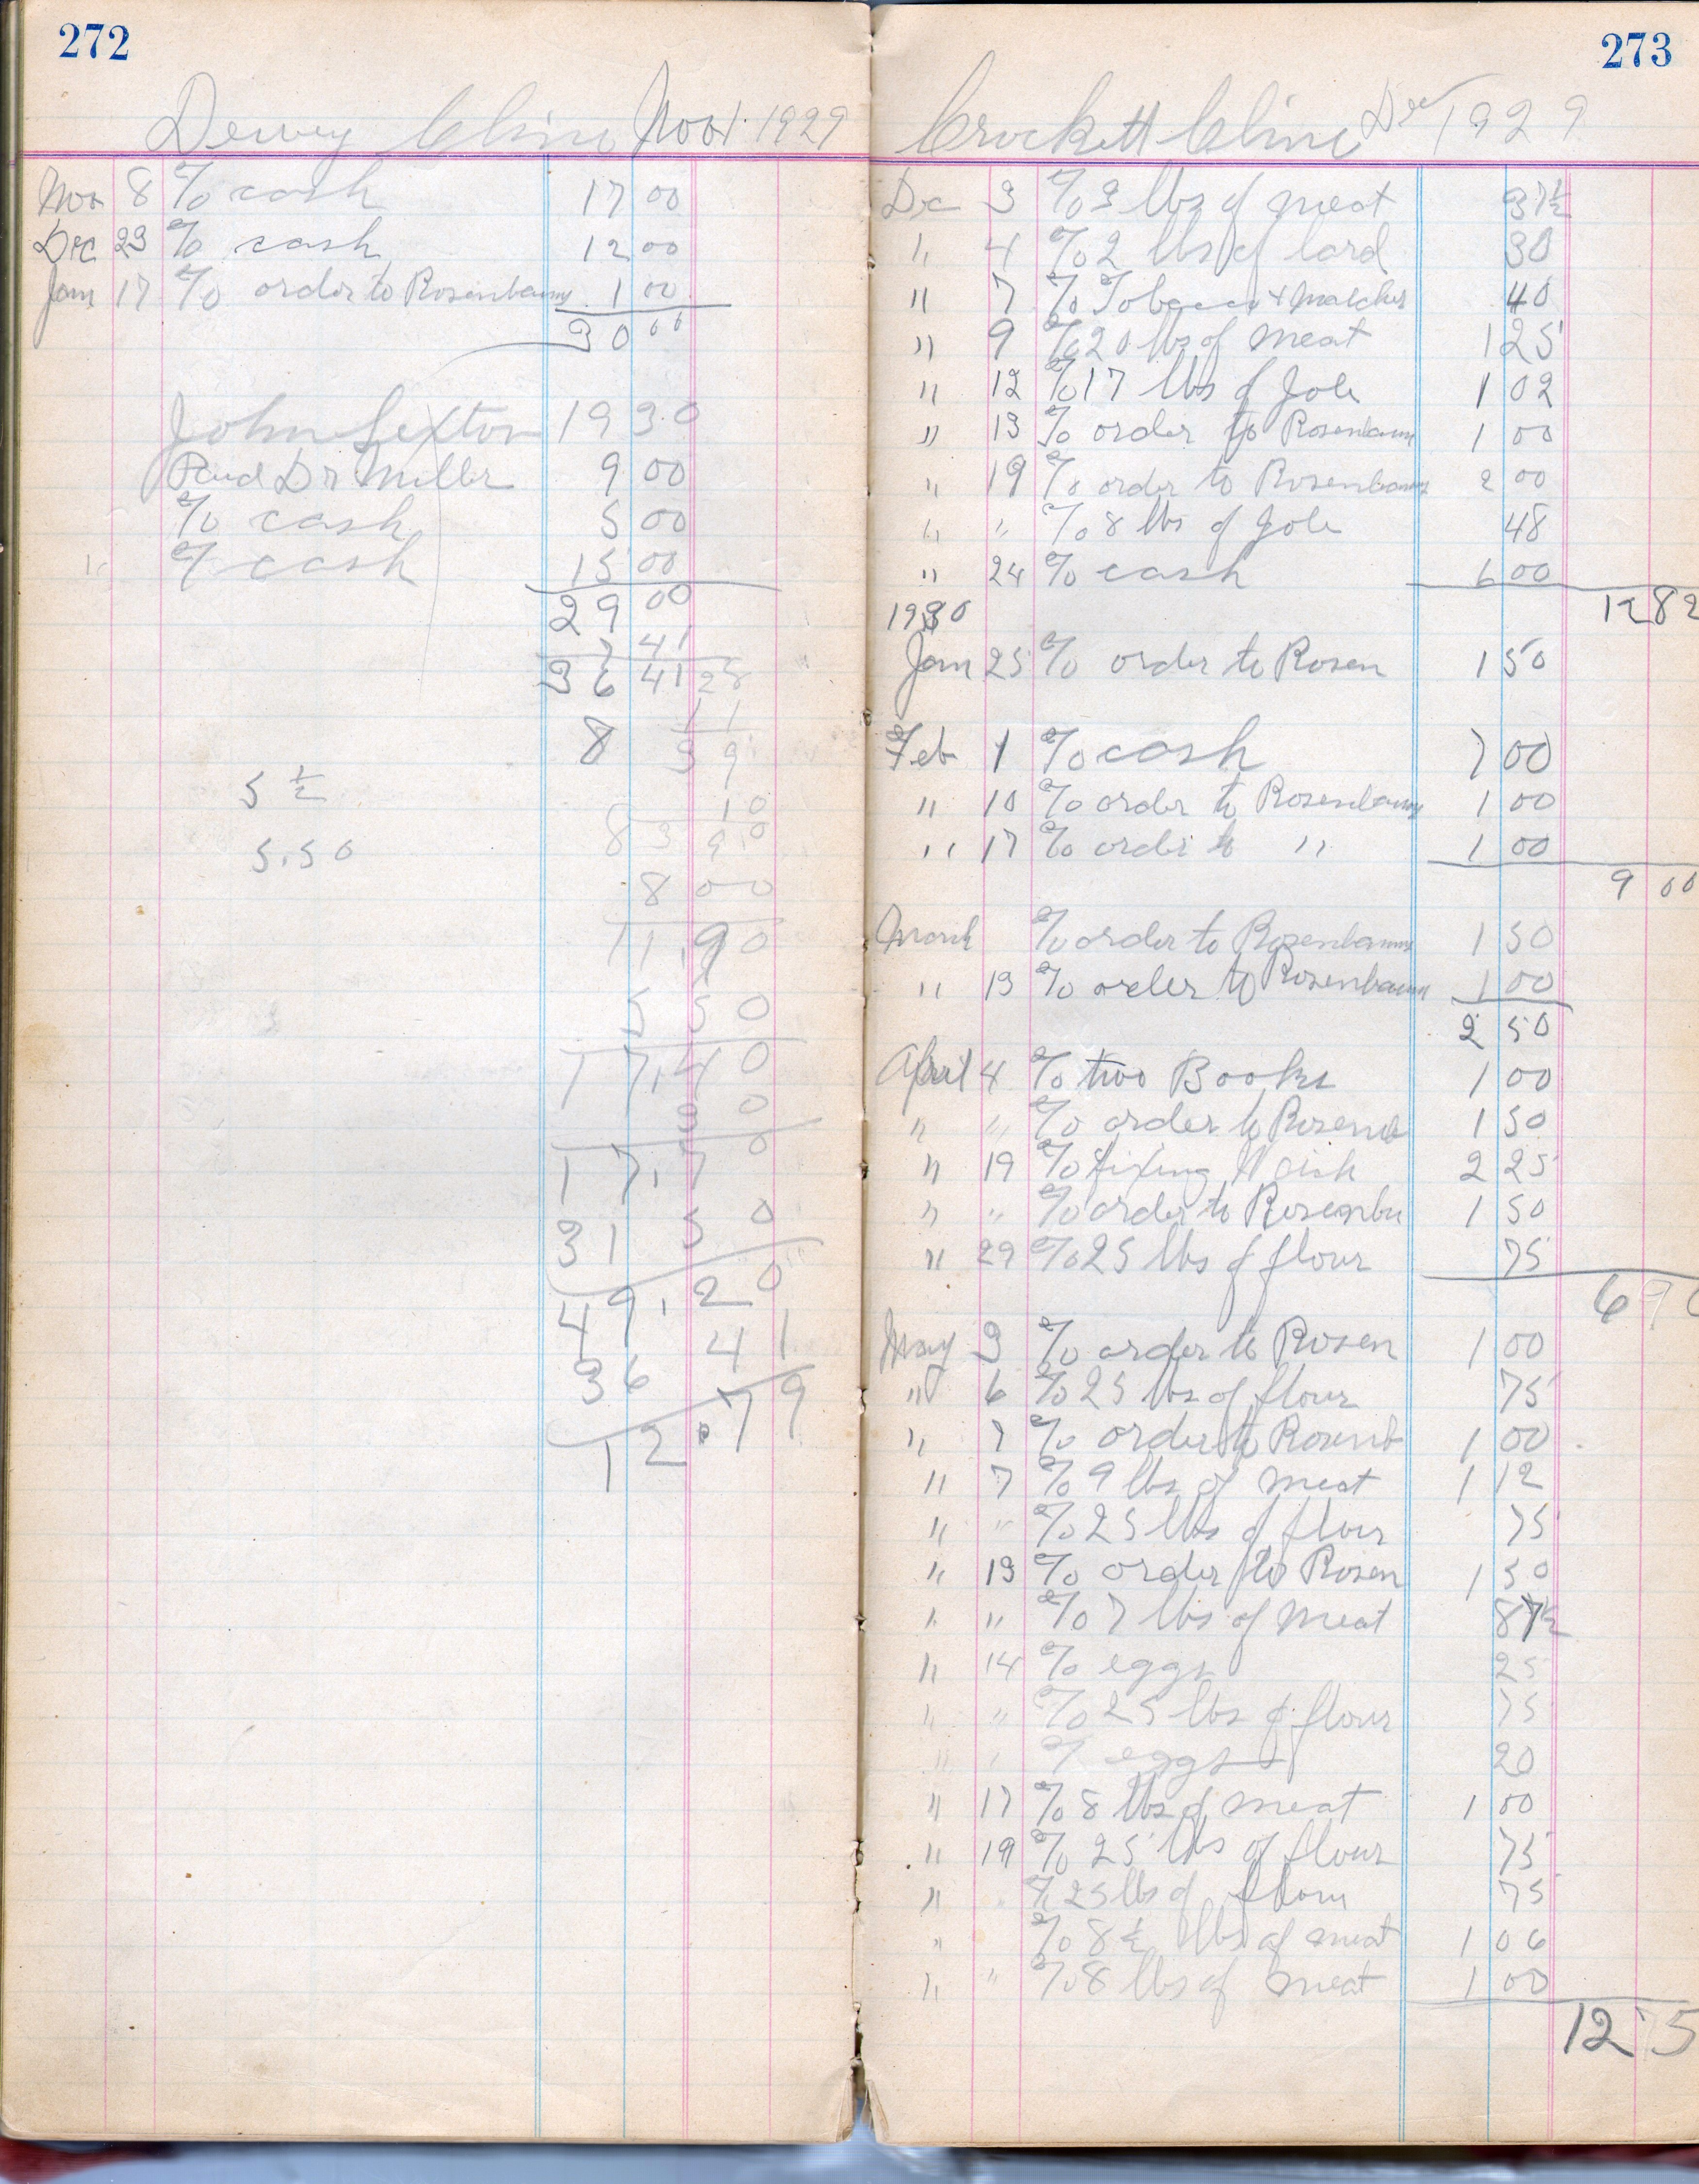 272
Dewey Cline Nov 1. 1929
Nov 8 % cash 17 00
Dec 23 % cash 12 00
Jan 17 % order to Rosenbaums 1 00
30 00
John Sexton 1930
Paid Dr Miller 9 00
% cash 5 00
" % cash 15 00
29 00
7 41
36 41 28
11
8 39
5 ½
10
8 3 90
5.50
8 00
11.90
5 50
17.40
30
17.70
31 50
49.20
36 41
12.79
273
Crockett Cline Dec 1929
Dec 3 % 3 lbs of meat 37½
" 4 % 2 lbs of lard 30
" 7 % Tobacco & matches 40
" 9 % 20 lbs of meat 1 25
" 12 % 17 lbs of Jole 1 02
" 13 % order to Rosenbaum 1 00
" 19 % order to Rosenbaums 2 00
" " % 8 lbs of Jole 48
" 24 % cash 6 00
12 82
1930
Jan 25 % order to Rosen 1 50
Feb 1 % cash 7 00
" 10 % order to Rosenbaums 1 00
" 17 % order to " 1 00
9 00
March % order to Rosenbaums 1 50
" 13 % order to Rosenbaum 1 00
2 50
April 4 % two Books 1 00
" " % order to Rosenb 1 50
" 19 % fixing 2 25
" " % order to Rosenbu 1 50
" 29 % 25 lbs of flour 75
6 90
May 3 % order to Rosen 1 00
" 6 % 25 lbs of flour 75
" 7 % order to Rosenb 1 00
" 7 % 9 lbs of meat 1 12
" " % 25 lbs of flour 75
" 13 % order to Rosen 1 50
" " % 7 lbs of meat 87½
" 14 % eggs 25
" " % 25 lbs of flour 75
" " % eggs 20
" 17 % 8 lbs of meat 1 00
" 19 % 25 lbs of flour 75
" % 25 lbs of flour 75
" % 8½ lbs of meat 1 06
" " % 8 lbs of meat 1 00
12 75